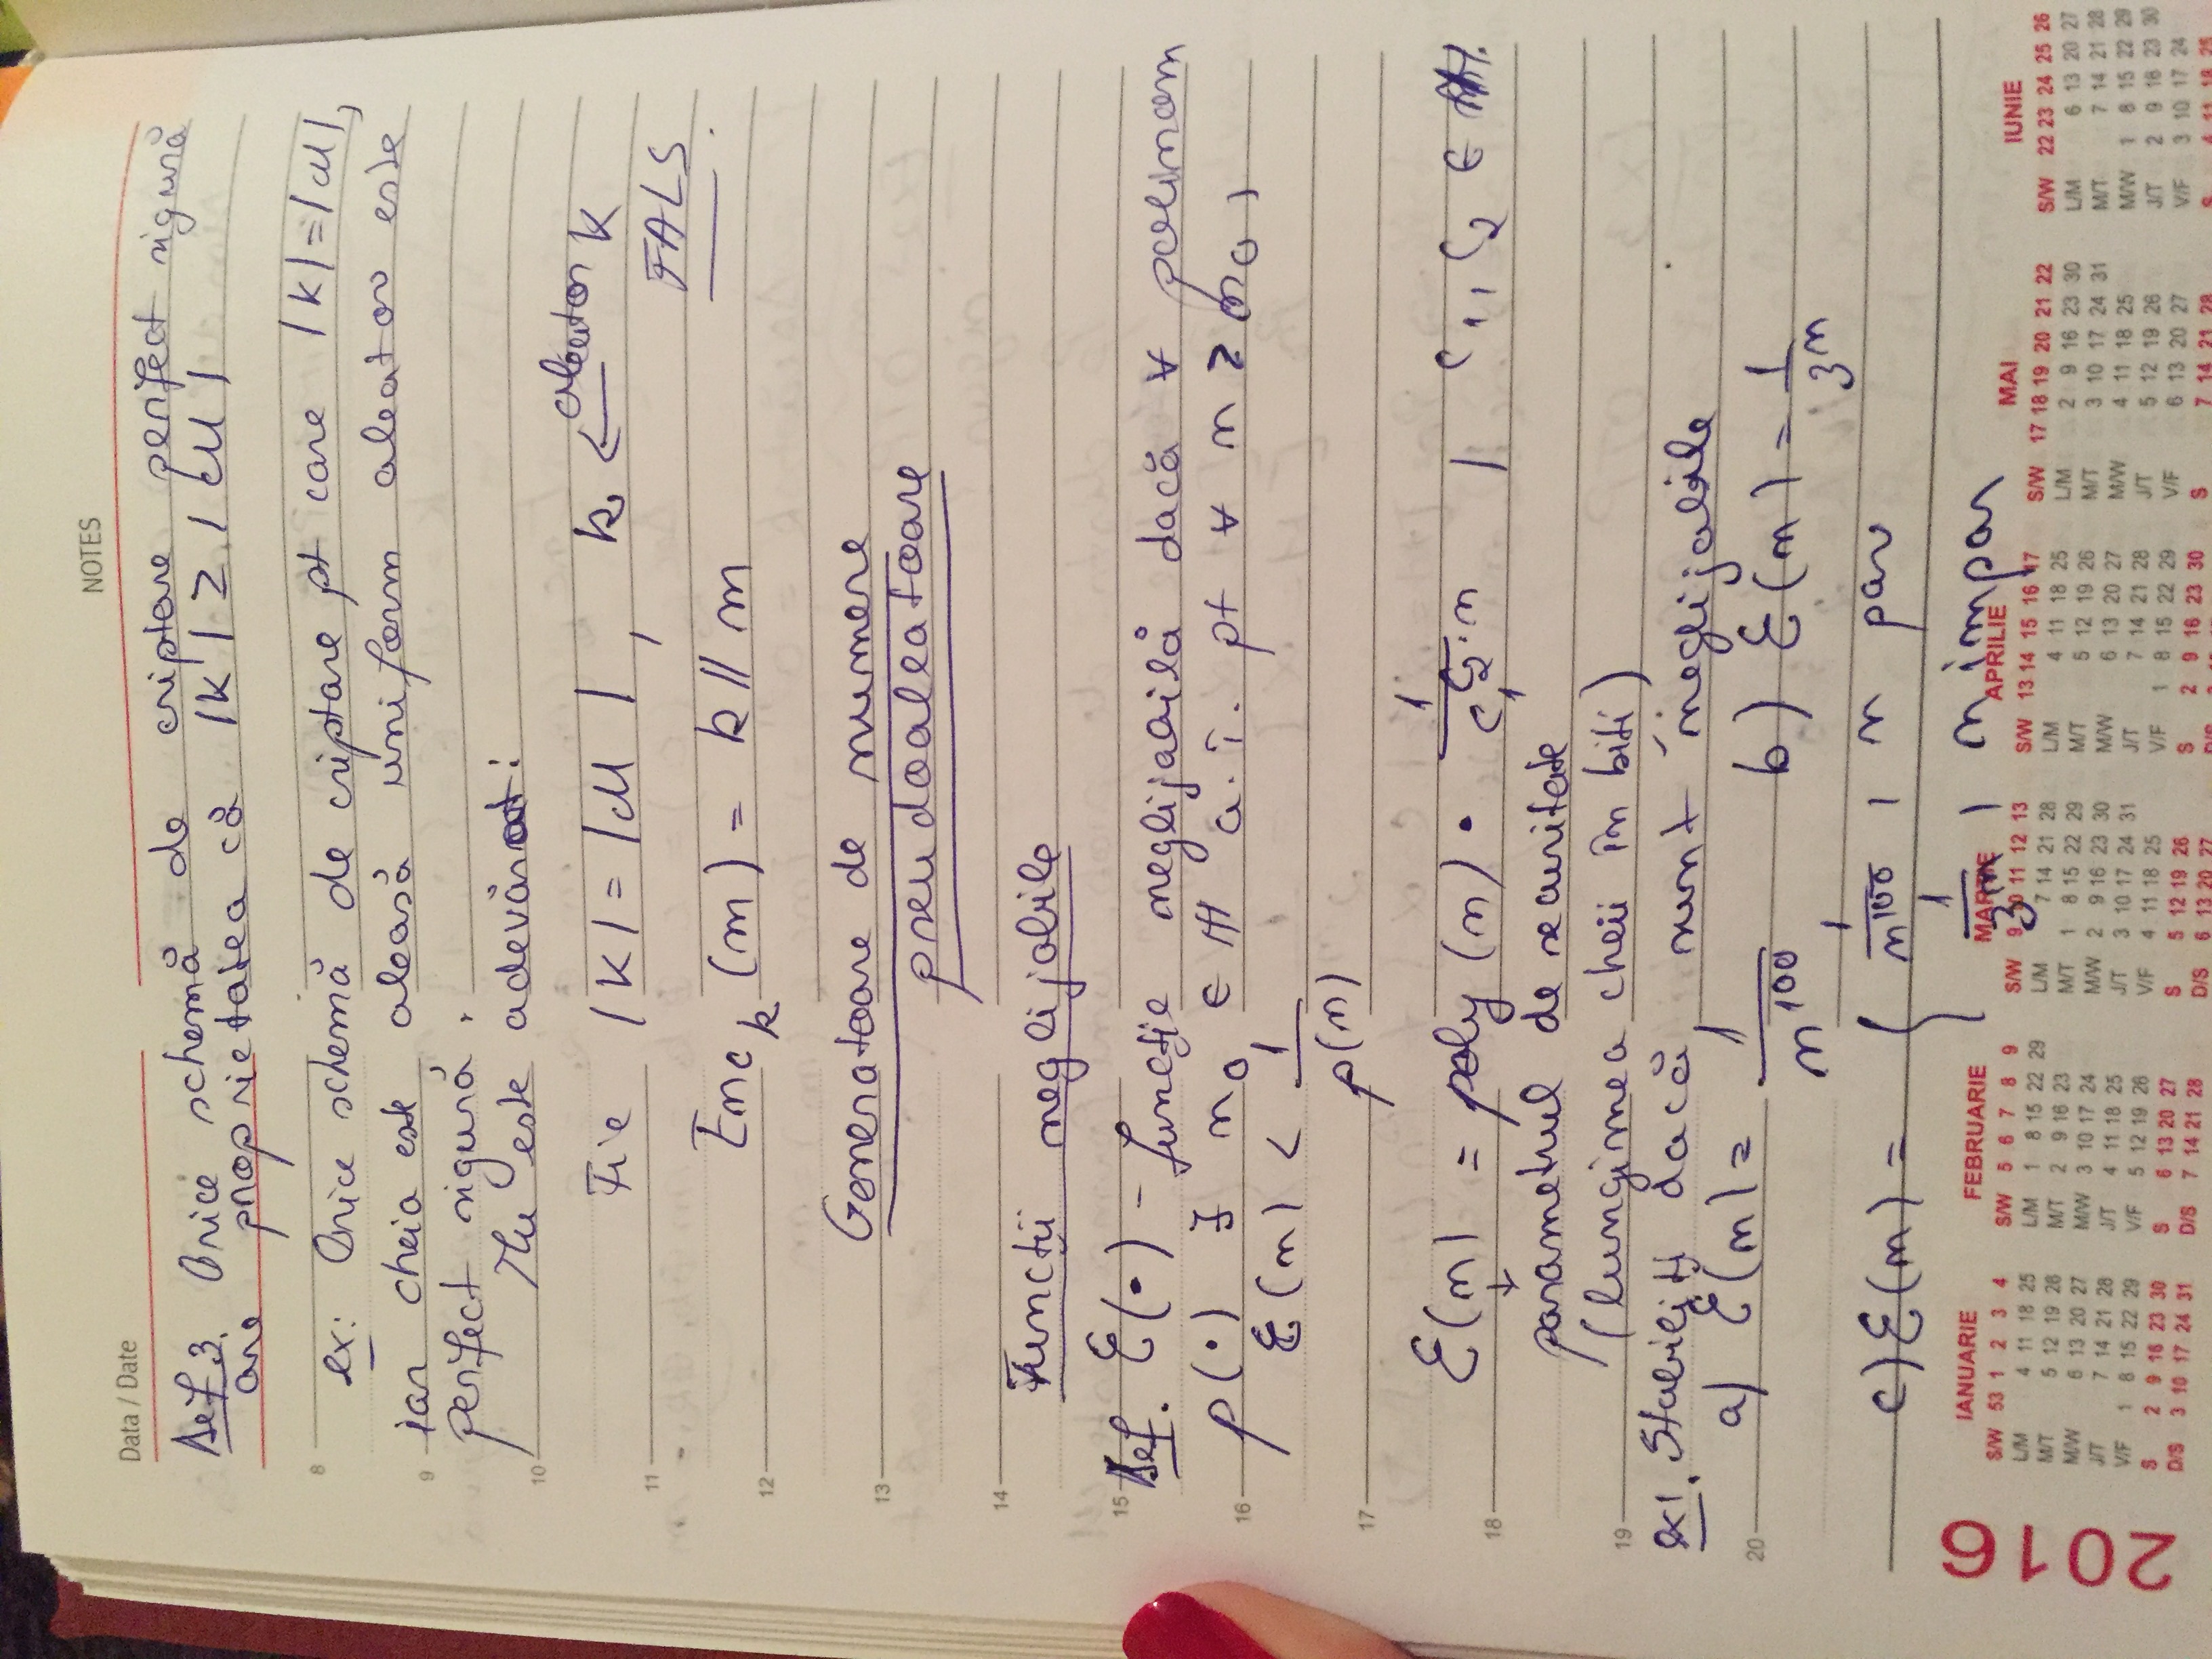 NOTES
Data / Date
Def 3. Orice schemă de criptare perfect sigură
are proprietatea că |K| ≥ |M|
8
ex: Orice schemă de criptare pt care |K|=|M|,
9 iar cheia este aleasă uniform aleator este
perfect sigură.
10 Nu este adevărat:
Fie |K| = |M|, k ← aleator K
11 FALS
Enc_k (m) = k || m
12
Generatoare de numere
13
pseudoaleatoare
14
Funcții neglijabile
15 Def. ε(·) - funcție neglijabilă dacă ∀ polinom
16 p(·) ∃ n₀ ∈ ℕ a.î. pt ∀ n ≥ n₀,
ε(n) < 1/p(n)
17
ε(n) = poly(n) · 1/c₁^(c₂·n), c₁, c₂ ∈ ℕ.
18 ↓
parametrul de securitate
19 (lungimea cheii în biți)
ex1. Stabiliți dacă sunt neglijabile
20 a) ε(n) = 1/n^100 b) ε(n) = 1/3^n
c) ε(n) = { 1/n^100, n par
1/3^n, n impar
2016
IANUARIE
S/W 53 1 2 3 4
L/M 4 11 18 25
M/T 5 12 19 26
M/W 6 13 20 27
J/T 7 14 21 28
V/F 1 8 15 22 29
S 2 9 16 23 30
D/S 3 10 17 24 31
FEBRUARIE
S/W 5 6 7 8 9
L/M 1 8 15 22 29
M/T 2 9 16 23
M/W 3 10 17 24
J/T 4 11 18 25
V/F 5 12 19 26
S 6 13 20 27
D/S 7 14 21 28
MARTIE
S/W 9 10 11 12 13
L/M 7 14 21 28
M/T 1 8 15 22 29
M/W 2 9 16 23 30
J/T 3 10 17 24 31
V/F 4 11 18 25
S 5 12 19 26
D/S 6 13 20 27
APRILIE
S/W 13 14 15 16 17
L/M 4 11 18 25
M/T 5 12 19 26
M/W 6 13 20 27
J/T 7 14 21 28
V/F 1 8 15 22 29
S 2 9 16 23 30
MAI
S/W 17 18 19 20 21 22
L/M 2 9 16 23 30
M/T 3 10 17 24 31
M/W 4 11 18 25
J/T 5 12 19 26
V/F 6 13 20 27
S 7 14 21 28
IUNIE
S/W 22 23 24 25 26
L/M 6 13 20 27
M/T 7 14 21 28
M/W 1 8 15 22 29
J/T 2 9 16 23 30
V/F 3 10 17 24
S 4 11 18 25